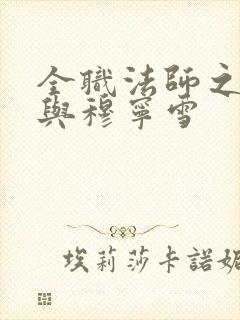 全職法師之
與穆寧雪
埃莉莎卡諾妮